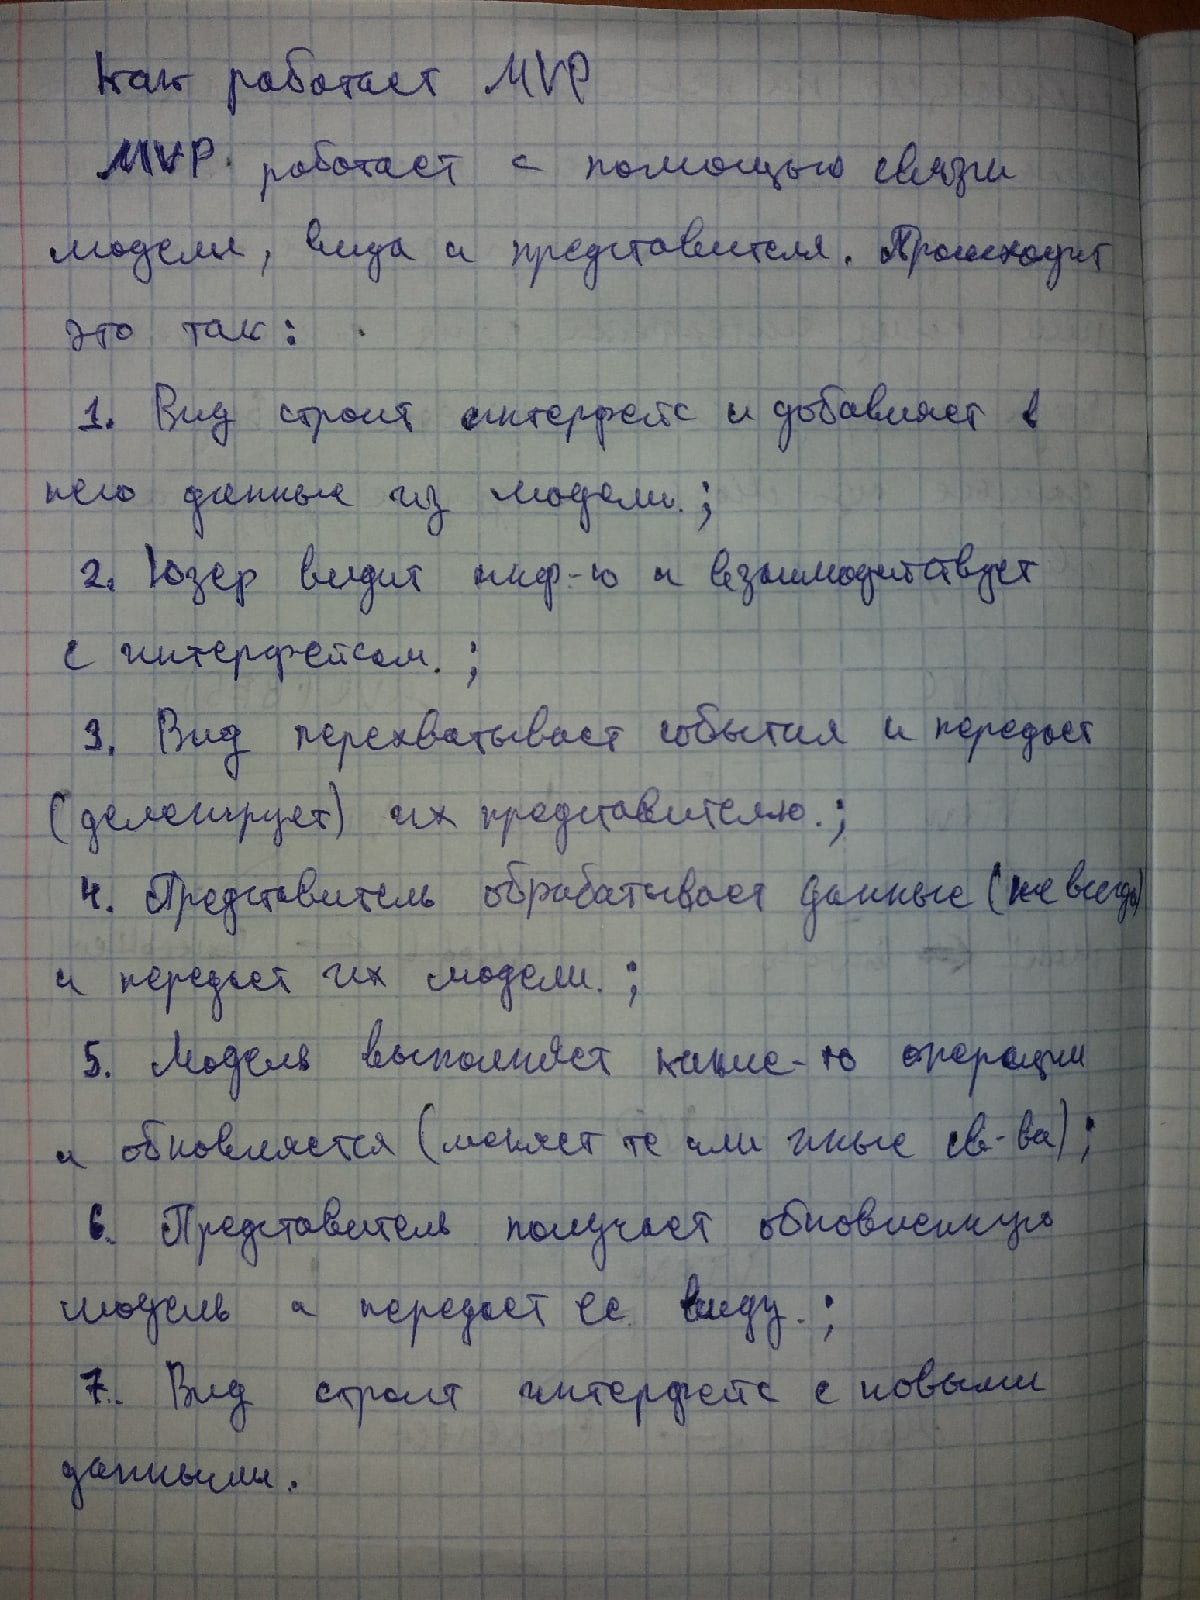 Как работает MVP
MVP работает с помощью связи
модели, вида и представителя. Происходит
это так:
1. Вид строит интерфейс и добавляет в
него данные из модели.;
2. Юзер видит инф-ю и взаимодитствует
с интерфейсом.;
3. Вид перехватывает события и передает
(делегирует) их представителю.;
4. Представитель обрабатывает данные (не всегда)
и передает их модели.;
5. Модель выполняет какие-то операции
и обновляется (меняет те или иные св-ва);
6. Представитель получает обновленную
модель и передает ее виду.;
7. Вид строит интерфейс с новыми
данными.